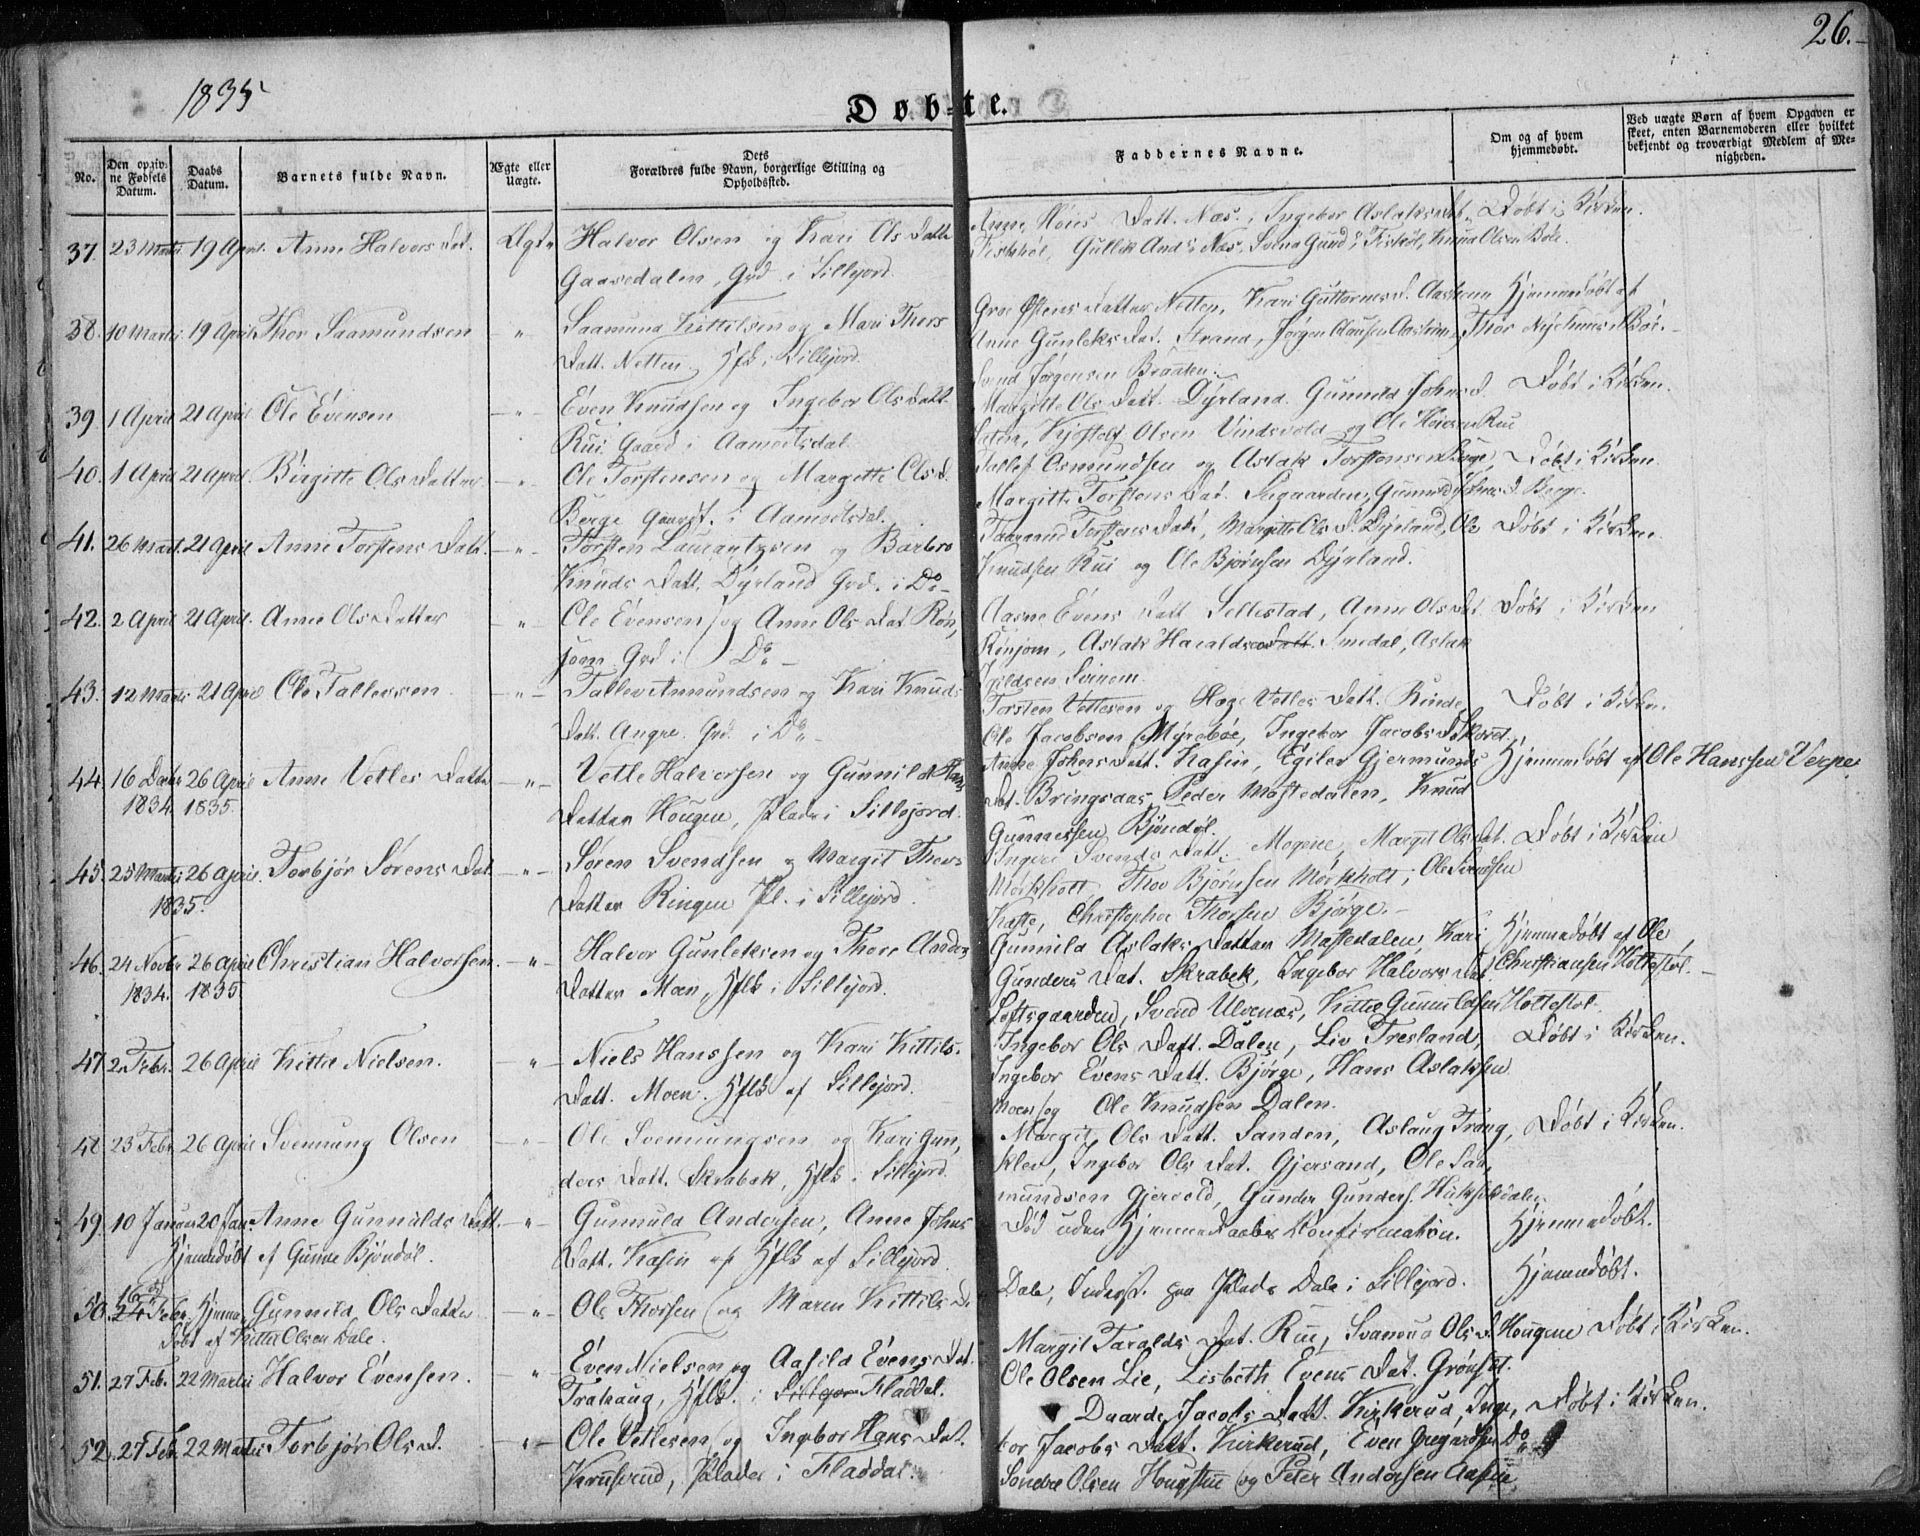 26.
1835
Døbte.
No.
Den opgivne Fødsels Datum.
Daabs Datum.
Barnets fulde Navn.
Ægte eller Uægte.
Dets Forældres fulde Navn, borgerlige Stilling og Opholdssted.
Faddernes Navne.
Om og af hvem hjemmedøbt.
Ved uægte Børn af hvem Opgaven er skeet, enten Barnemoderen eller hvilket bekjendt og troværdigt Medlem af Menigheden.
37. 23 Martii 19 April Anne Halvors Dat. Ægte Halvor Olsen og Kari Ols Datt
Gaasedalen, Grd i Sillejord.
Datt. Næs, Ingebor Aslaks Dat. Døbt i Kirken.
Gullik And.s Næs, Knud Olsen
38. 10 Martii 19 April Thor Saamundsen " Saamund Kittilsen og Mari Thors
Datt. Netten, Hfl. i Sillejord.
Gro Østens Datter Netten, Kari Guttormsd. Hjemmedøbt af
Anne Gunleks Dat. Strand, Jørgen Thor
Svend Jørgensen Braaten.
39 1 April 21 April Ole Evensen " Even Knudsen og Ingebor Ols Datt.
Rui Gaard i Aamotsdal.
Margitte Ols Datt. Dyrland. Gunnild Johns D. Døbt i Kirken.
Olsen Vindsvold og Ole Rui
40. 1 April 21 April Birgitte Ols Datter " Ole Torstensen og Margitte Ols D.
Berge Gaard i Aamotsdal.
Tallef Osmundsen og Aslak Torstensen Berge, Døbt i Kirken.
Margitte Torstens Dat. Gunnild D. Berge.
41. 26 Mart. 21 April Anne Torstens Datt. " Torsten Laurantzsen og Barbro
Knuds Datt. Dyrland Grd. i Do
Torstens Datt, Margitte Ols D. Dyrland, Ole Døbt i Kirken.
Knudsen Rui og Ole Bjørnsen Dyrland.
42. 2 April 21 April Anne Ols Datter " Ole Evensen og Anne Ols Dat Røn,
jom Grd i Do
Aasne Evens Datt Sellestad, Anne Ols Dat. Døbt i Kirken
Rønjom, Aslak Haralds Smedal, Aslak
43. 12 Martii 21 April Ole Tallevsen " Tallev Anundsen og Kari Knuds
Datt. Grd. i Do
Torsten Vetlesen og Vetles Datt. Rinde, Døbt i Kirken.
Ole Jacobsen Myrebøe, Ingebor Jacobs D.
44. 16 Decbr 26 April Anne Vetles Datter " Vetle Halvorsen og Gunnild Hans
1834. 1835.
Datter Hougen, Plads i Sillejord.
Anne Johns Datt. Kasin, Egilev Gjermunds Hjemmedøbt af Ole Hanssen Verpe
Dat. Bringsaas, Peder Mostedalen, Knud
Gunnessen Bjøndøl.
45. 25 Martii 26 April. Torbjør Sørens Dat. " Søren Svendsen og Margit Thors
1835.
Datter Ringen Pl. i Sillejord.
Svends Datt. Mogene, Margit Ols Dat. Døbt i Kirken
Mørkholt, Thov Bjørnsen Mørkholt, Ole Svendsen
Christopher Thorsen Bjørge.
46. 24 Novbr 26 April Christian Halvorsen. " Halvor Gunleksen og Thore Anders
1834. 1835
Datter Moen, Hfl. i Sillejord.
Gunnild Aslaks Datter Mostedalen, Kari Hjemmedøbt af Ole
Gunders Dat. Skrabek, Ingebor Halvors Dat Christiansen Hottestøl.
Loftsgaarden, Svend Ulvenæs, Kittel Gunnildsen Hottestøl.
47. 2. Febr. 26 April Kittil Nielsen. " Niels Hanssen og Kari Kittils.
Datt. Moen. Hfl. af Sillejord.
Ingebor Ols Datt. Dalen, Liv Tresland, Døbt i Kirken.
Ingebor Evens Datt. Bjørge, Hans Aslaksen
Moen og Ole Knudsen Dalen.
48. 23 Febr. 26 April Svennung Olsen " Ole Svennungsen og Kari Gun,
ders Datt. Skrabek, Hfl. i Sillejord.
Margit Ols Datt. Sanden, Aslaug Trang, Døbt i Kirken.
klev, Ingebor Ols Dat. Gjersand, Ole Saa,
mundsen Gunder Gunders.
49. 10 Januar 20 Jan Anne Gunnulds Datt. " Gunnuld Andersen, Anne Johns
Hjemmedøbt af Gunne Bjøndøl
Datt. Kasin af Hfl. af Sillejord.
Død uden Hjemme Daabs Konfirmation. Hjemmedøbt.
50. 16 24 Febr. Hjemme, Gunnild Ols Datter " Ole Thorsen og Maren Kittils D.
døbt af Kittil Olsen Dale.
Dale, Inderst. paa Plads Dale i Sillejord. Hjemmedøbt.
51. 27 Feb. 22 Martii Halvor Evensen. " Even Nielsen og Aasild Evens Dat.
Trahaug, Hfl. i Sillejord Fladdal.
Margit Taralds Dat. Rue, Ols D. Hougene Døbt i Kirken.
Ole Olsen Lie, Lisbeth Evens Dat.
52. 27 Feb. 22 Martii Torbjør Ols D. " Ole Vetlesen og Ingebor Hans Dat.
Pladse i Fladdal.
Jacobs Datt. Kirkerud, Inge, Døbt i Kirken.
bor Jacobs Datt. Kirkerud, Even Do
Sondre Olsen og Peter Andersen